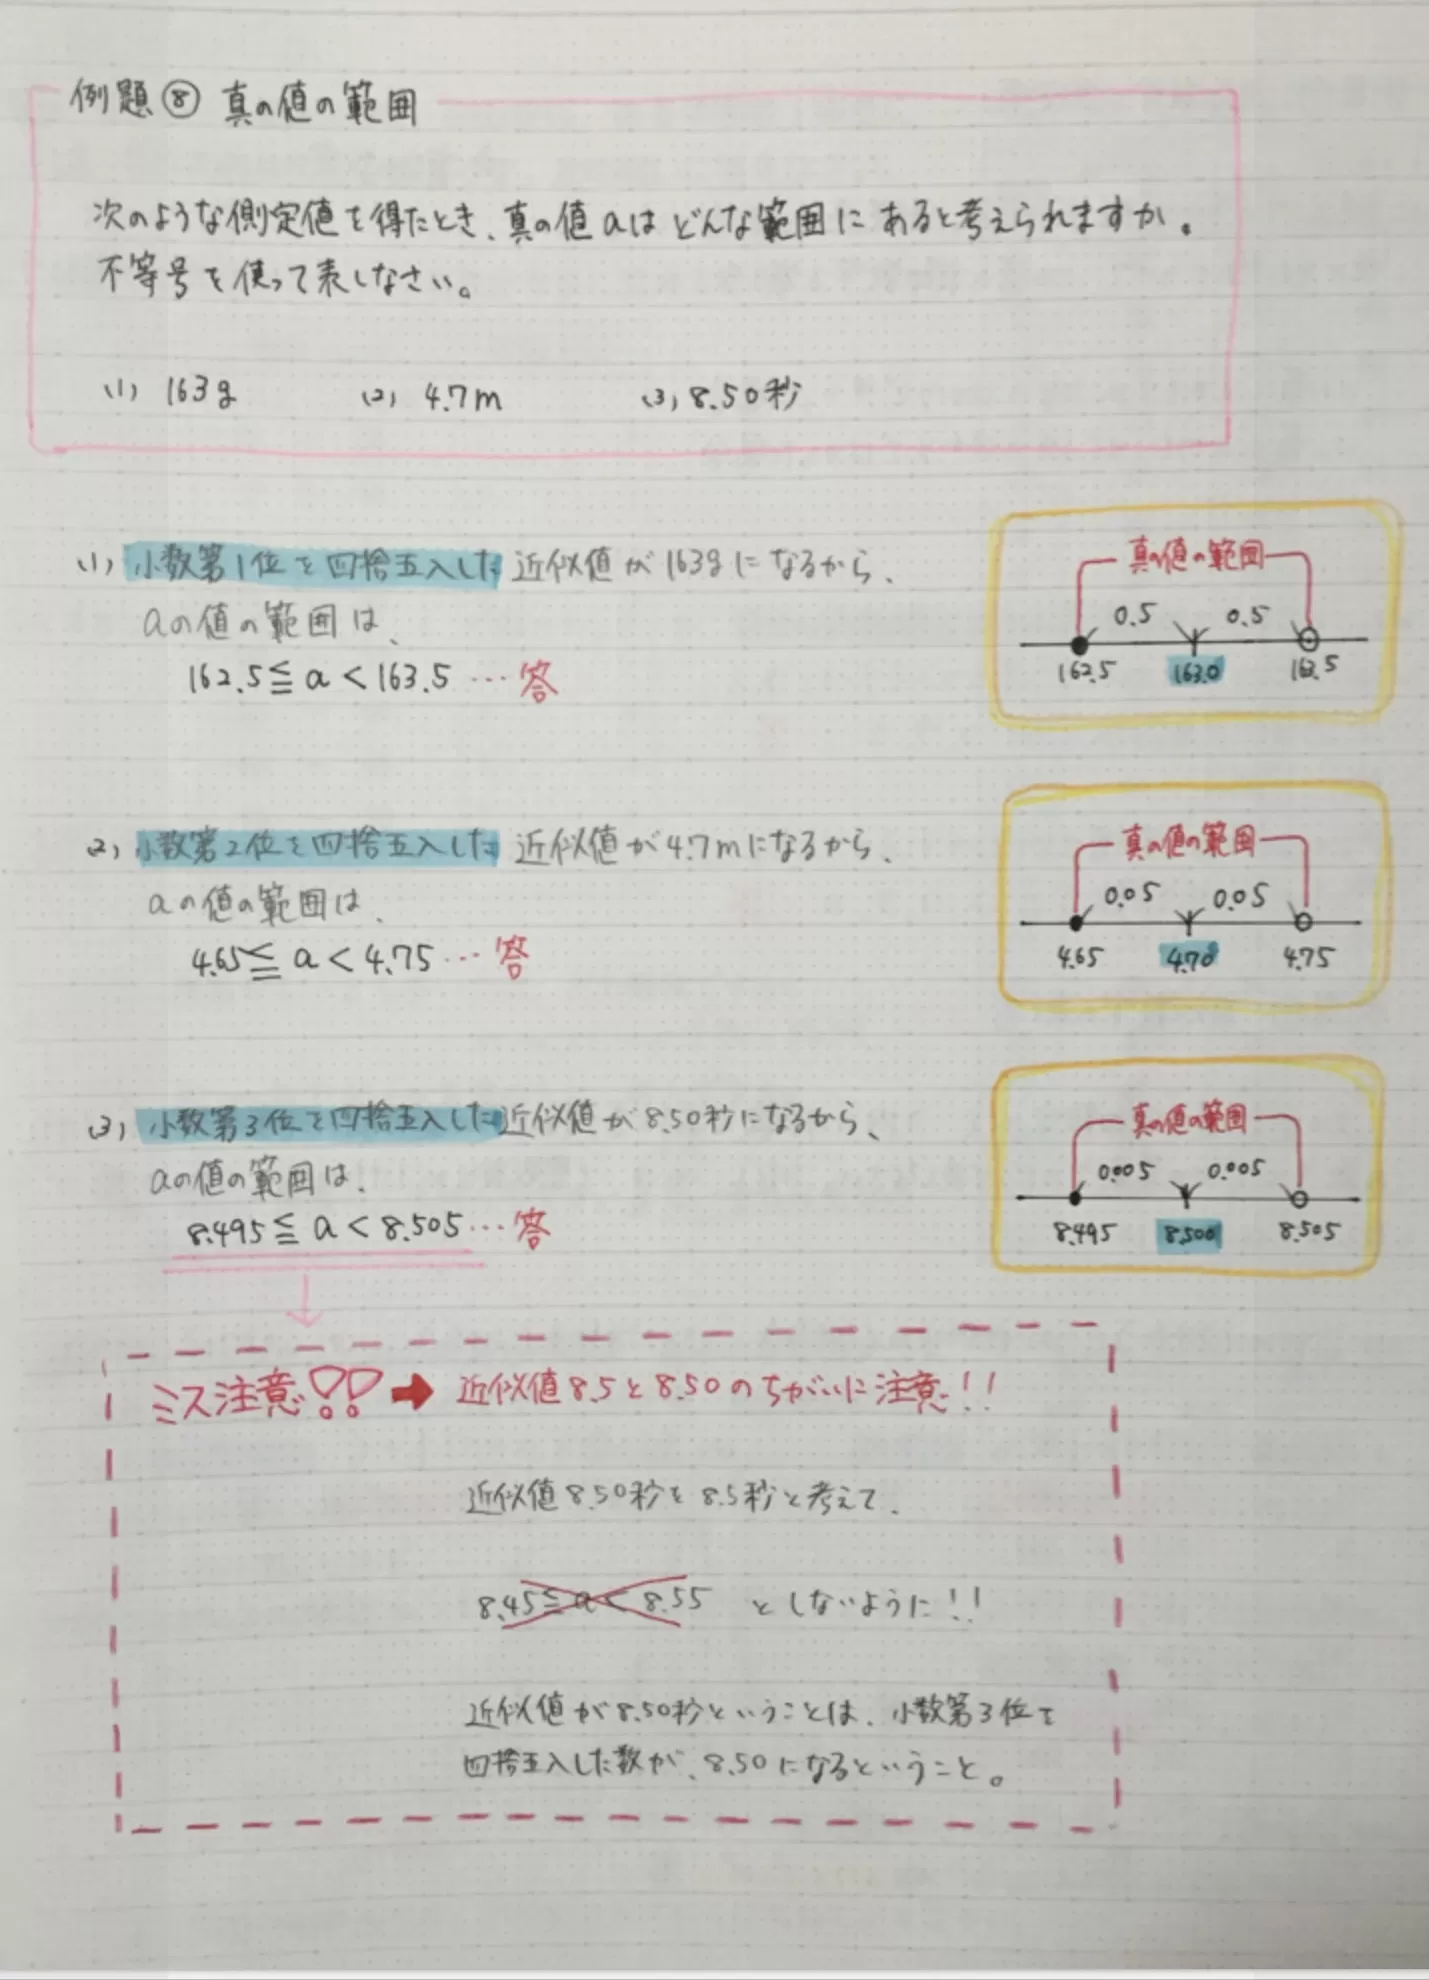 例題⑧ 真の値の範囲
次のような測定値を得たとき、真の値aはどんな範囲にあると考えられますか。
不等号を使って表しなさい。
(1) 163g (2) 4.7m (3) 8.50秒
(1) 小数第1位を四捨五入した近似値が163gになるから、
aの値の範囲は、
162.5≦a<163.5 …答
真の値の範囲
0.5 0.5
162.5 163.0 163.5
(2) 小数第2位を四捨五入した近似値が4.7mになるから、
aの値の範囲は、
4.65≦a<4.75 …答
真の値の範囲
0.05 0.05
4.65 4.70 4.75
(3) 小数第3位を四捨五入した近似値が8.50秒になるから、
aの値の範囲は、
8.495≦a<8.505 …答
真の値の範囲
0.005 0.005
8.495 8.500 8.505
ミス注意!! ➡ 近似値8.5と8.50のちがいに注意!!
近似値8.50秒を8.5秒と考えて、
8.45≦a<8.55 としないように!!
近似値が8.50秒ということは、小数第3位を
四捨五入した数が、8.50になるということ。